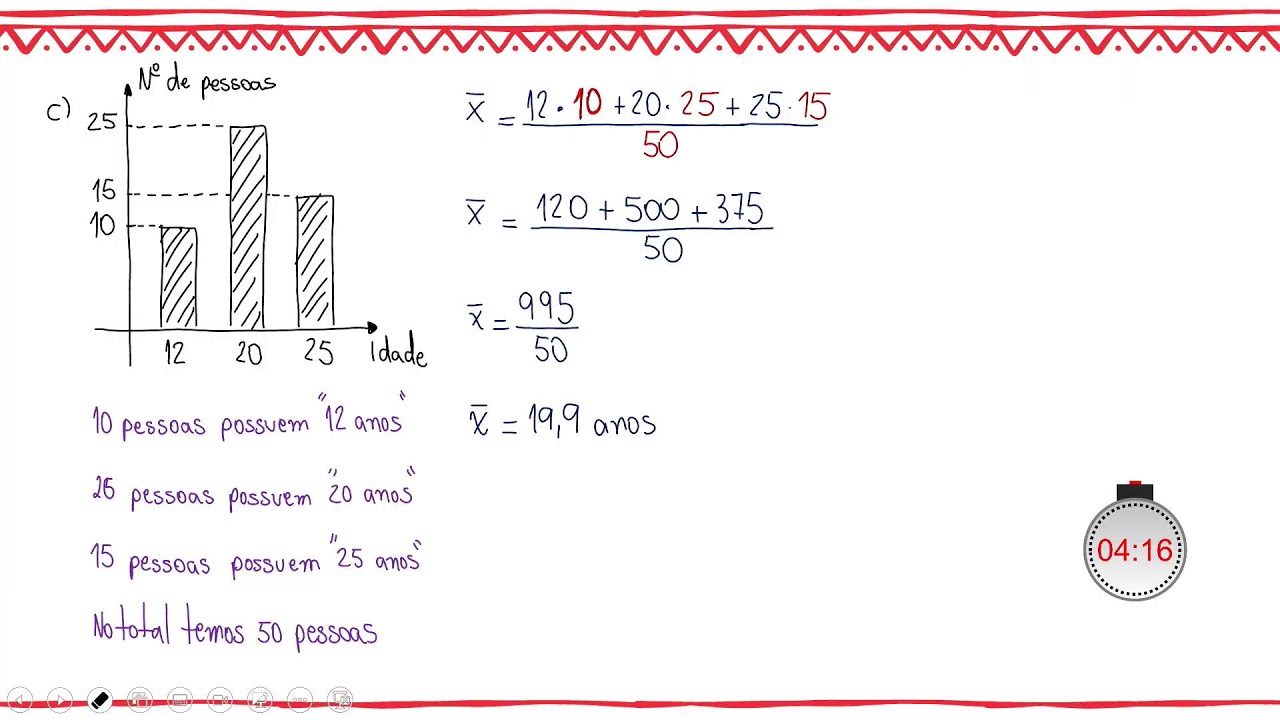 c)
Nº de pessoas
25
15
10
12 20 25 Idade
10 pessoas possuem "12 anos"
25 pessoas possuem "20 anos"
15 pessoas possuem "25 anos"
No total temos 50 pessoas
x̄ = 12·10 + 20·25 + 25·15
50
x̄ = 120 + 500 + 375
50
x̄ = 995
50
x̄ = 19,9 anos
04:16